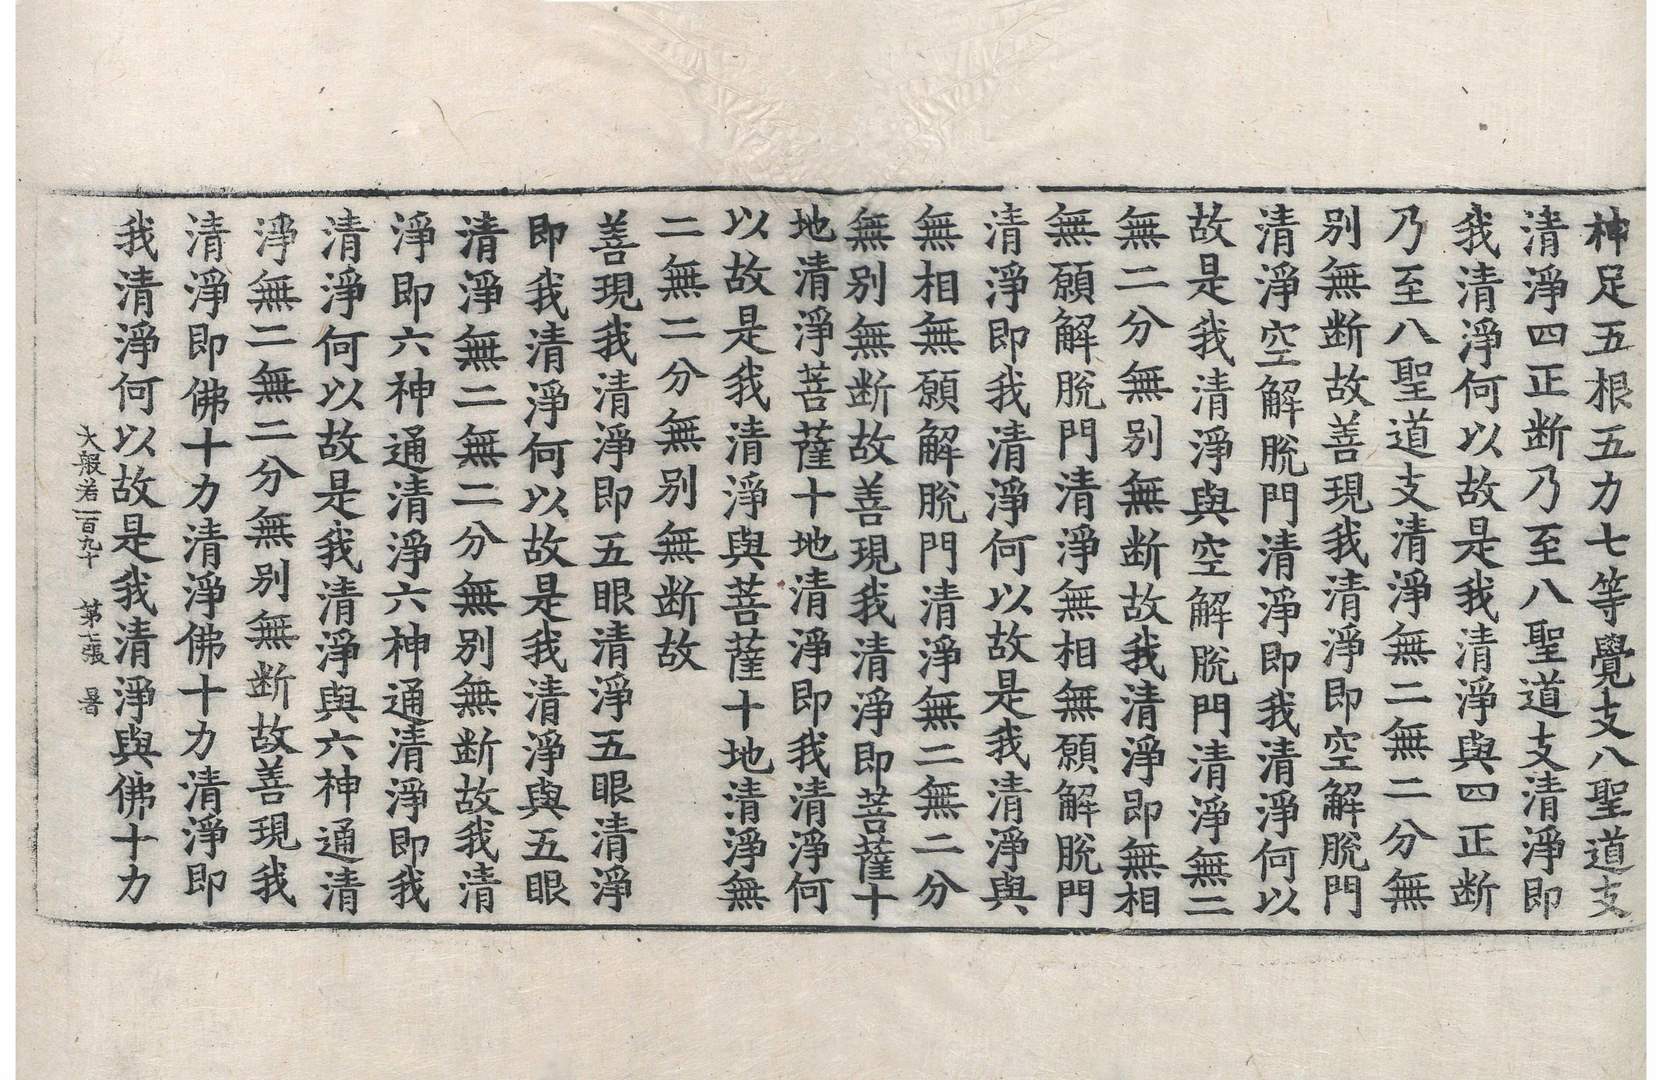 神足五根五力七等覺支八聖道支
清淨四正断乃至八聖道支清淨即
我清淨何以故是我清淨與四正断
乃至八聖道支清淨無二無二分無
别無断故善現我清淨即空解脫門
清淨空解脫門清淨即我清淨何以
故是我清淨與空解脫門清淨無二
無二分無别無断故我清淨即無相
無願解脫門清淨無相無願解脫門
清淨即我清淨何以故是我清淨與
無相無願解脫門清淨無二無二分
無别無断故善現我清淨即菩薩十
地清淨菩薩十地清淨即我清淨何
以故是我清淨與菩薩十地清淨無
二無二分無别無断故
善現我清淨即五眼清淨五眼清淨
即我清淨何以故是我清淨與五眼
清淨無二無二分無别無断故我清
淨即六神通清淨六神通清淨即我
清淨何以故是我清淨與六神通清
淨無二無二分無别無断故善現我
清淨即佛十力清淨佛十力清淨即
我清淨何以故是我清淨與佛十力
大般若一百九十 第七張 暑